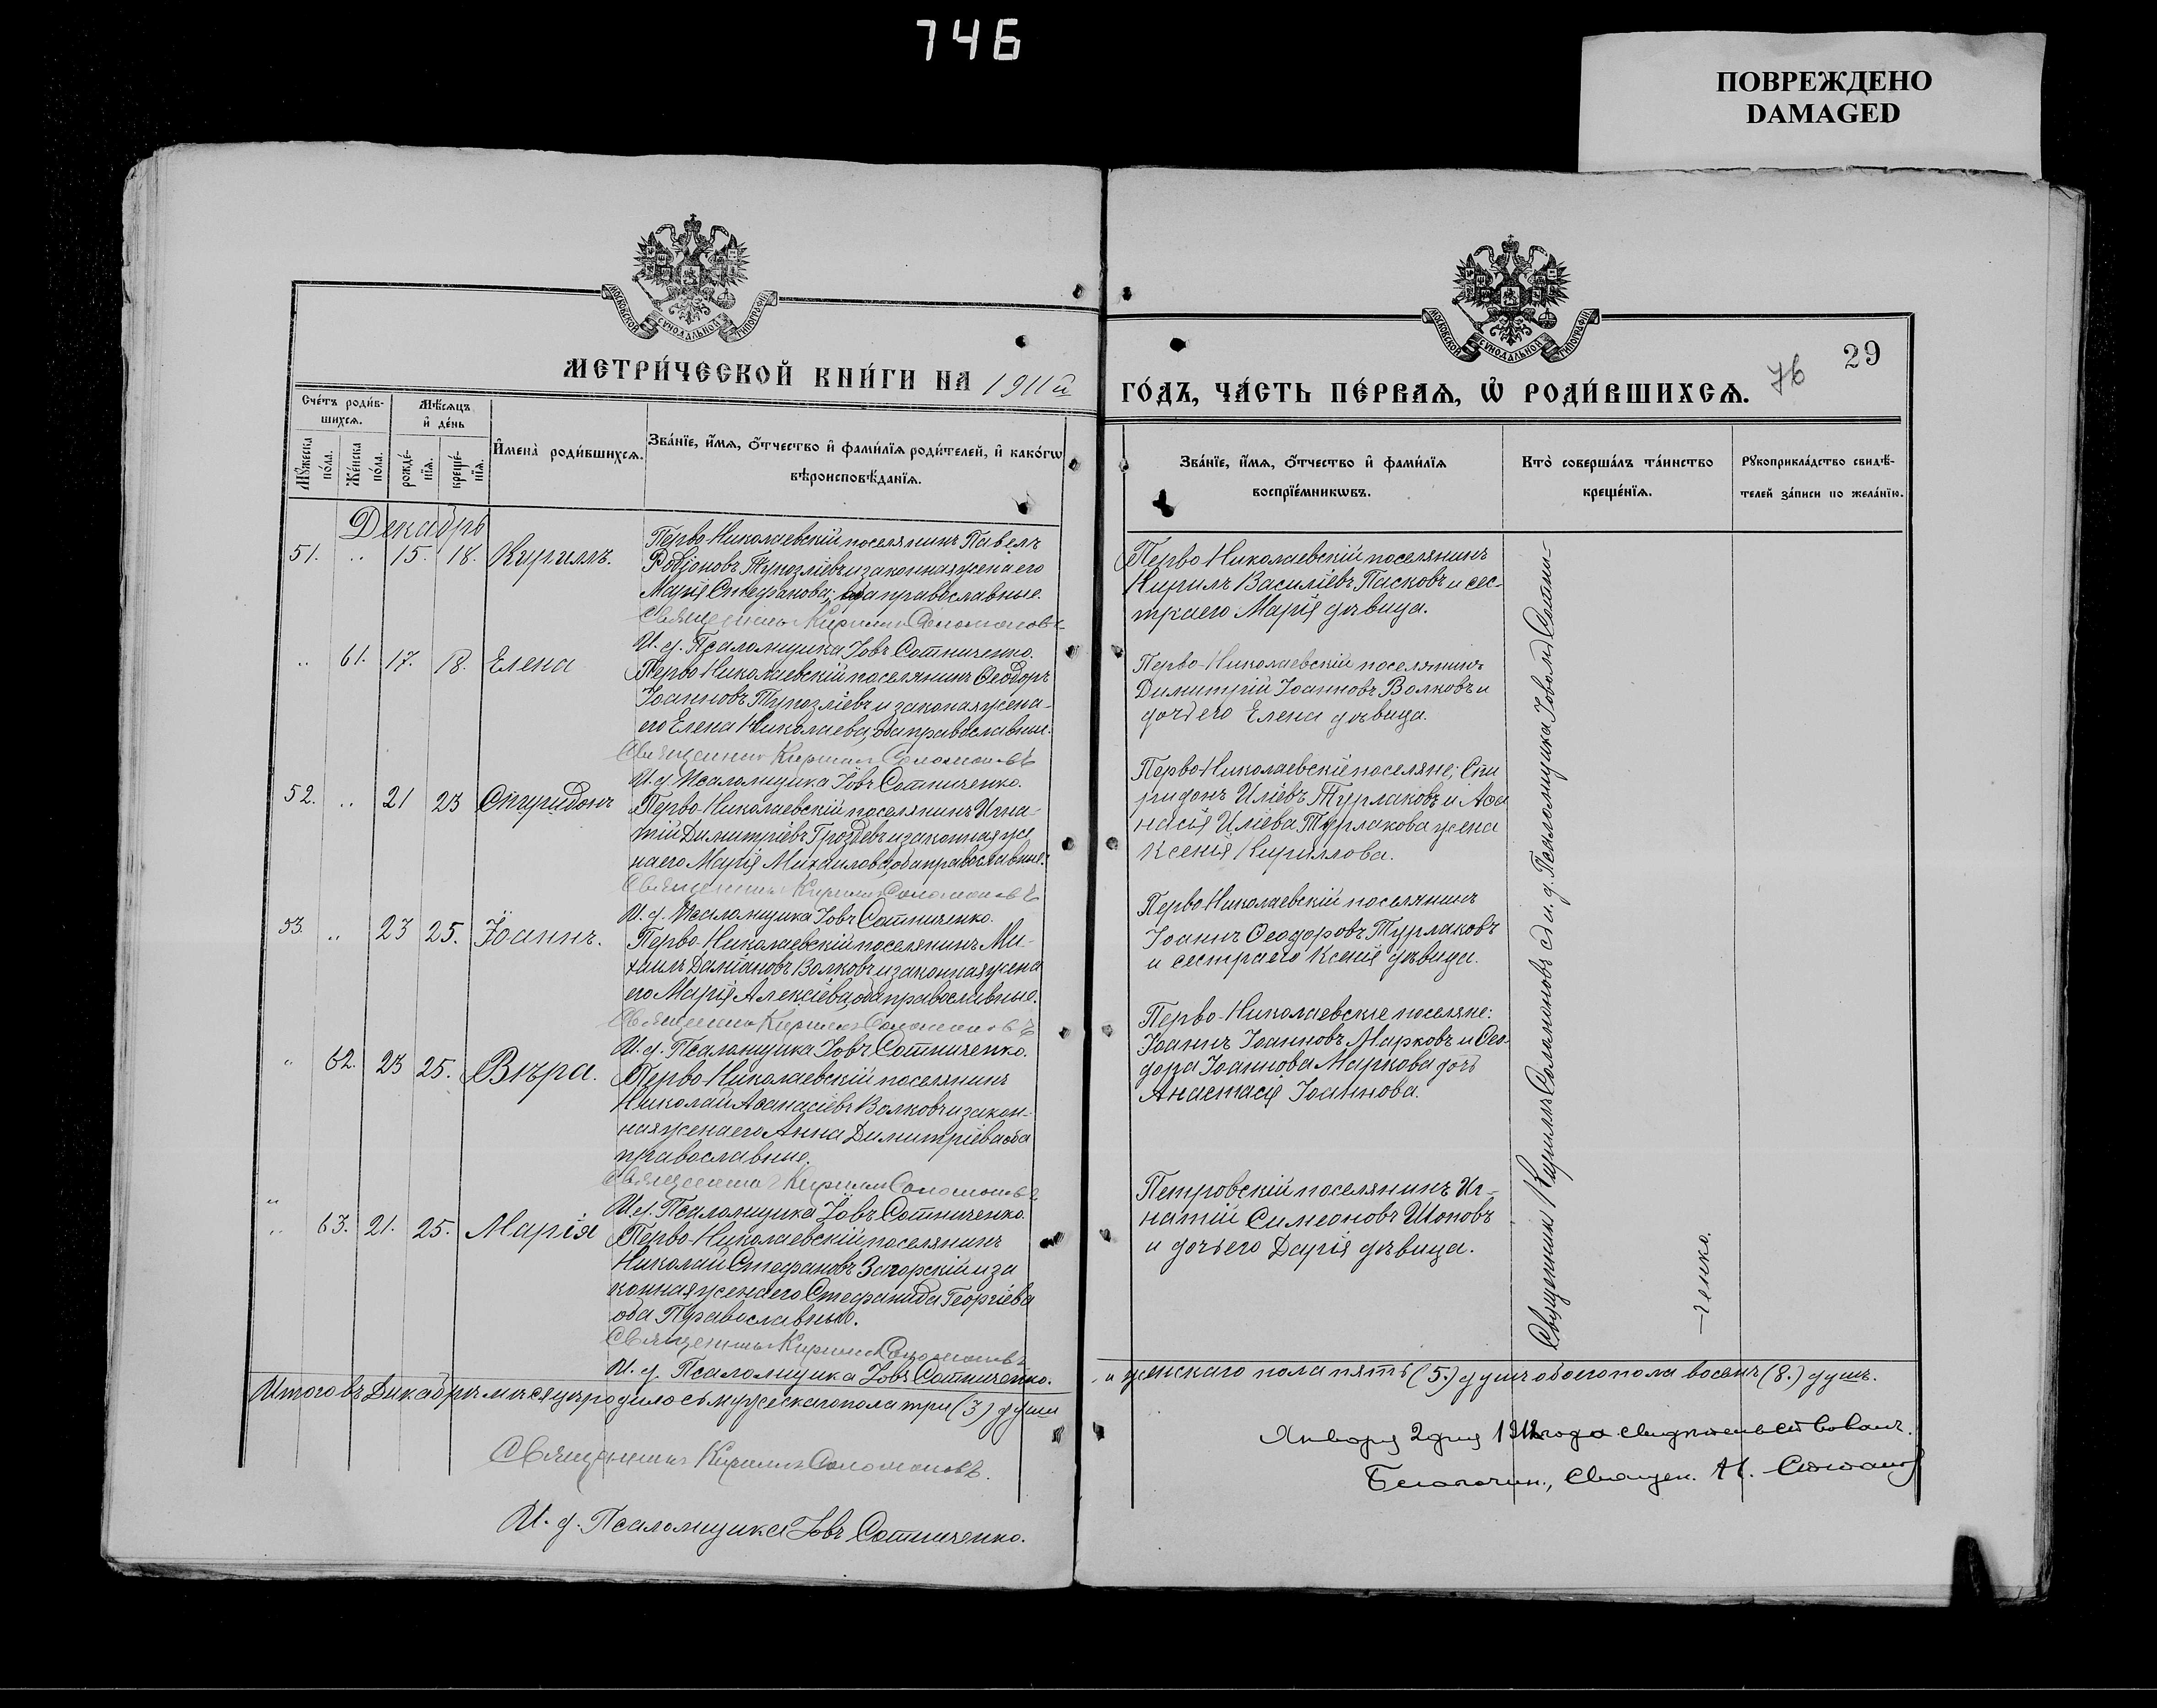 746
ПОВРЕЖДЕНО
DAMAGED
МОСКОВСКОЙ СУНОДАЛЬНОЙ ТИПОГРАФІИ
МОСКОВСКОЙ СУНОДАЛЬНОЙ ТИПОГРАФІИ
МЕТРИ́ЧЕСКОЙ КНИ́ГИ НА 1911й
ГО́ДЪ, ЧА́СТЬ ПЕ́РВАѦ, Ѡ҆ РОДИ́ВШИХСѦ.
76
29
Сче́тъ роди́в-
шихсѧ.
Мꙋ́жеска
по́ла.
Же́нска
по́ла.
Мѣ́сѧцъ
и҆ де́нь
рожде́-
нїѧ.
креще́-
нїѧ.
И҆мена̀ роди́вшихсѧ.
Зва́нїе, и҆́мѧ, ѻ҆́тчество и҆ фами́лїѧ роди́телей, и҆ како́гѡ
вѣроисповѣ́данїѧ.
Зва́нїе, и҆́мѧ, ѻ҆́тчество и҆ фами́лїѧ
воспрїе́мникѡвъ.
Кто̀ соверша́лъ та́инство
креще́нїѧ.
Рꙋкоприкла́дство свидѣ́-
телей за́писи по жела́нїю.
Декабрь
51. „ 15. 18. Кириллъ.
Перво-Николаевскій поселянинъ Павелъ
Родіоновъ Тукозліевъ и законная жена его
Марія Стефанова, оба православные.
Священникъ Кириллъ Соломоновъ
И. д. Псаломщика Іовъ Сотниченко.
Перво Николаевскій поселянинъ
Кирилъ Василіевъ Пасковъ и сес-
тра его Марія дѣвица.
„ 61. 17. 18. Елена
Перво Николаевскій поселянинъ Ѳеодоръ
Іоанновъ Тукозліевъ и законая жена
его Елена Николаева, оба православные.
Священникъ Кириллъ Соломоновъ
И. д. Псаломщика Іовъ Сотниченко.
Перво-Николаевскій поселянинъ
Димитрій Іоанновъ Волковъ и
дочь его Елена дѣвица.
52. „ 21 23 Спиридонъ
Перво-Николаевскій поселянинъ Игна-
тій Димитріевъ Гроздевъ и законная же
на его Марія Михаилова, оба православные.
Священникъ Кириллъ Соломоновъ
И. д. Псаломщика Іовъ Сотниченко.
Перво Николаевскіе поселяне; Спи
ридонъ Иліевъ Турлаковъ и Аѳа
насія Иліева Турлакова жена
Ксенія Кириллова.
53. „ 23 25. Іоаннъ.
Перво-Николаевскій поселянинъ Ми-
хаилъ Даміановъ Волковъ и законная жена
его Марія Алексіева, оба православные.
Священникъ Кириллъ Соломоновъ
И. д. Псаломщика Іовъ Сотниченко.
Перво Николаевскій поселянинъ
Іоаннъ Ѳеодоровъ Турлаковъ
и сестра его Ксенія дѣвица.
„ 62. 23 25. Вѣра.
Перво-Николаевскій поселянинъ
Николай Аѳанасіевъ Волковъ и закон-
ная жена его Анна Димитріева оба
православные.
Священникъ Кириллъ Соломоновъ
И. д. Псаломщика Іовъ Сотниченко.
Перво-Николаевскіе поселяне:
Іоаннъ Іоанновъ Марковъ и Ѳео-
дора Іоаннова Маркова дочь
Анастасія Іоаннова.
„
„ 63. 21. 25. Марія
Перво-Николаевскій поселянинъ
Николай Стефановъ Загорскій и за
конная жена его Стефанида Георгіева
оба Православные.
Священникъ Кириллъ Соломоновъ
И. д. Псаломщика Іовъ Сотниченко.
Петровскій поселянинъ Иг-
натій Симеоновъ Шоповъ
и дочь его Дарія дѣвица.
Священникъ Кириллъ Соломоновъ съ и. д. Псаломщика Іовомъ Сотни-
-ченко.
Итого въ Декабрѣ мѣсяцѣ родилось мужескаго пола три (3) души
и женскаго пола пять (5.) душъ обоего пола восемь (8.) душъ.
Священникъ Кириллъ Соломоновъ.
И. д. Псаломщика Іовъ Сотниченко.
Января 2 дня 1912 года свидѣтельствовалъ.
Благочин., Священ. Н. Стоянов